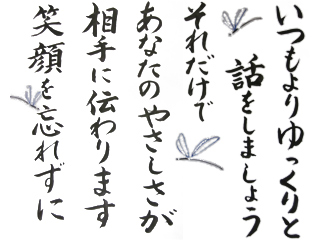 いつもよりゆっくりと
話をしましょう
それだけで
あなたのやさしさが
相手に伝わります
笑顔を忘れずに